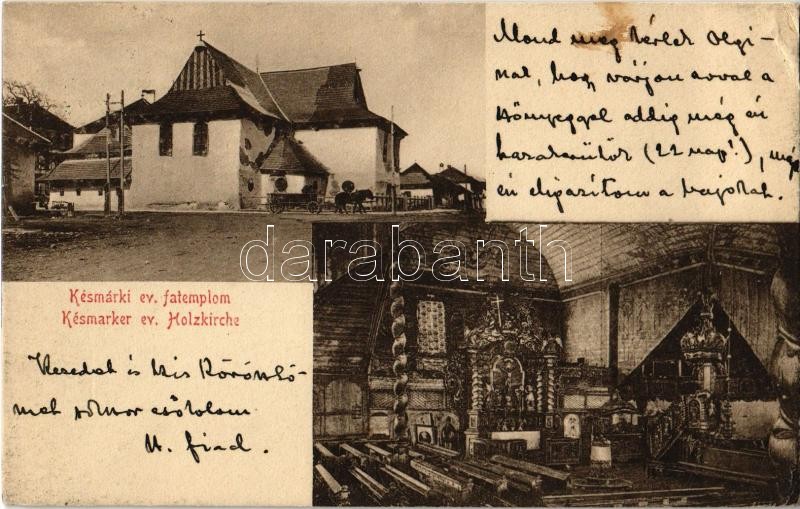 Mond meg kérlek Olgi-
nak, hogy várjon avval a
könyeggel addig még én
hazakerülök (22 nap!), még
én eligazítom a bajokat.
darabanth
Késmárki ev. fatemplom
Késmarker ev. Holzkirche
Kezedet és kis
csókolom
H. fiad.